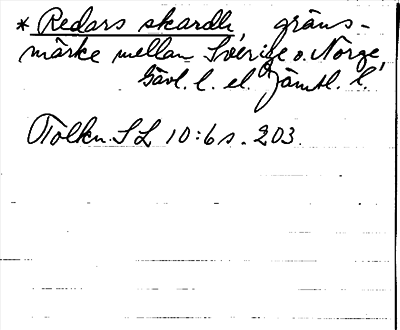 * Redars skardh, gräns-
märke mellan Sverige o. Norge,
Gävl. l. el. Jämtl. l.
Tolkn. SL 10:6 s. 203.